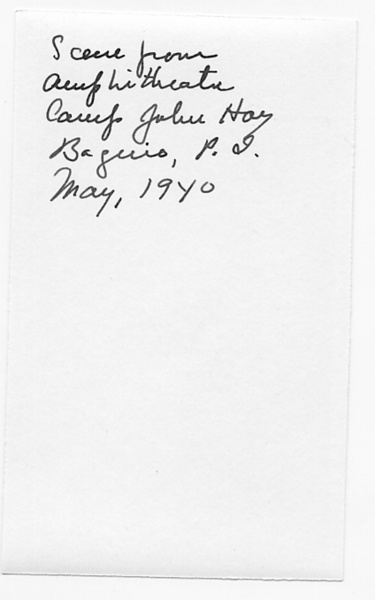 Scene from
Amphitheatre
Camp John Hay
Baguio, P. I.
May, 1940